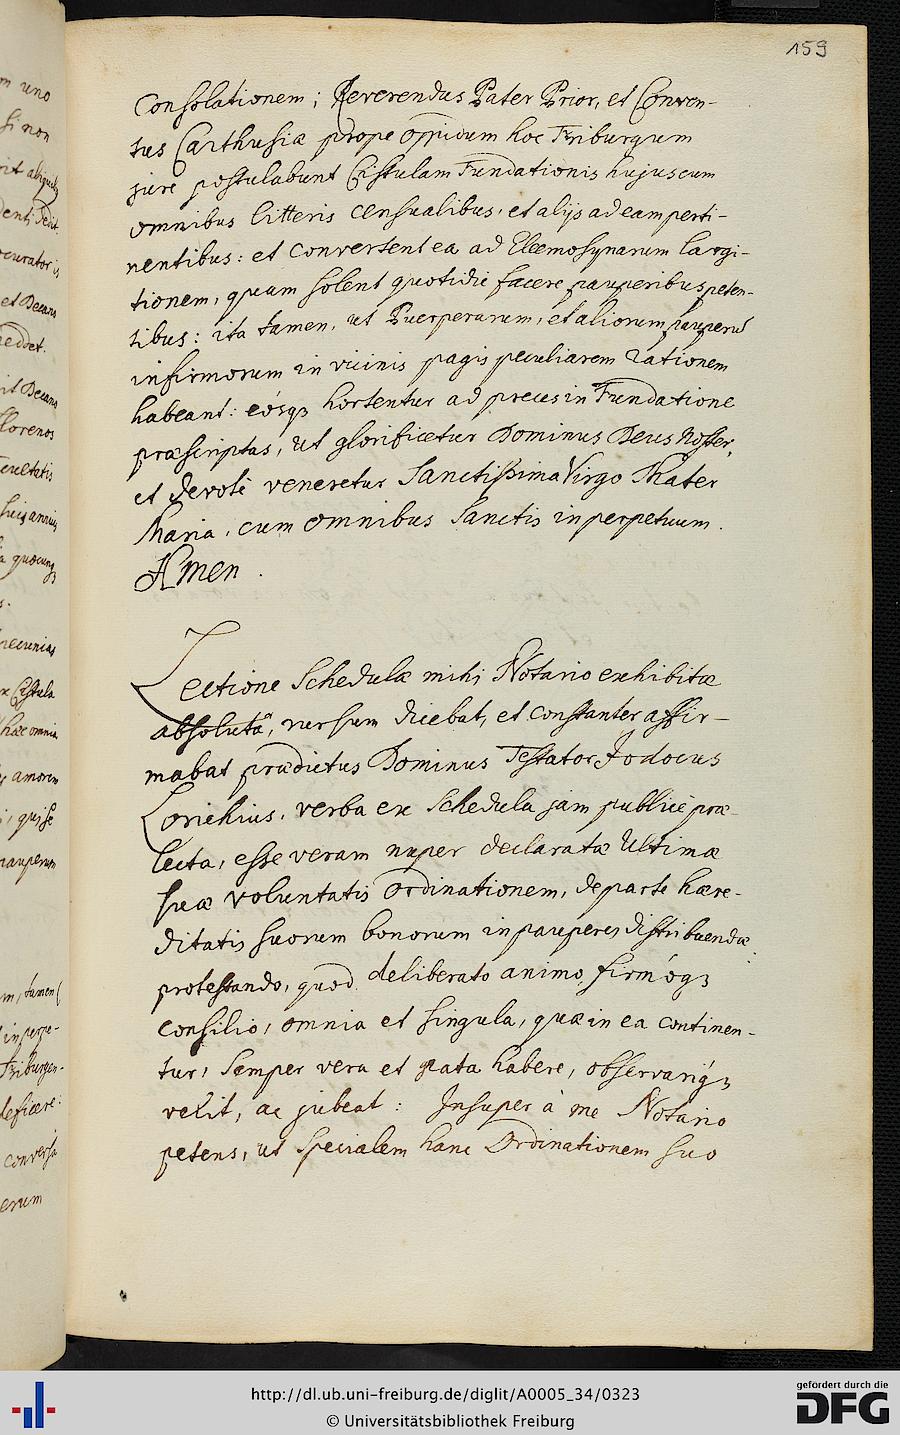 159
Consolationem; Reverendus Pater Prior, et Conven-
tus Carthusiæ prope oppidum hoc Friburgum
jure postulabunt Cistulam Fundationis hujus cum
omnibus litteris censualibus, et alijs ad eam perti-
nentibus: et convertent ea ad Eleemosynarum largi-
tionem, quam solent quotidie facere pauperibus peten-
tibus: ita tamen, ut Puerperarum, et aliorum pauperū
infirmorum in vicinis pagis peculiarem rationem
habeant: eósqȝ hortentur ad preces in Fundatione
præscriptas, ut glorificetur Dominus Deus Noster,
et devotè veneretur Sanctissima Virgo Mater
Maria, cum omnibus Sanctis in perpetuum.
Amen.
Lectione Schedulæ mihi Notario exhibitæ
absolutâ, rursum dicebat, et constanter affir-
mabat prædictus Dominus Testator Jodocus
Lorichius, verba ex Schedula jam publicè præ-
lecta, esse veram nuper declaratæ Ultimæ
suæ voluntatis ordinationem, de parte hære-
ditatis suorum bonorum in pauperes distribuendæ
protestando, quod deliberato animo, firmóqȝ
consilio, omnia et singula, quæ in ea continen-
tur, semper vera et grata habere, observariqȝ
velit, ac jubeat: Insuper à me Notario
petens, ut specialem hanc Ordinationem suo
m uno
si non
et Decanu
it Decanu
florenos
pecunias
x Cistula
hæc omnia
amorem
, qui se
pauperum
m, tamen
in perpe-
Friburgen-
deficere:
conversa
erum
http://dl.ub.uni-freiburg.de/diglit/A0005_34/0323
© Universitätsbibliothek Freiburg
gefördert durch die
DFG